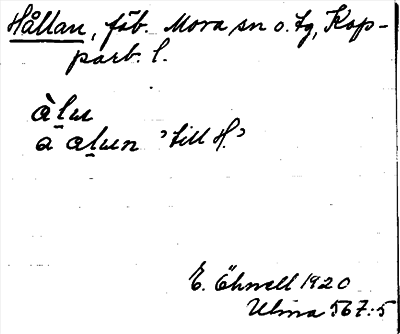 Hållan, fäb. Mora sn o. tg, Kop-
parb. l.
àl̠u
a al̠un 'till H.'
E. Öhrvell 1920
Ulma 567:5